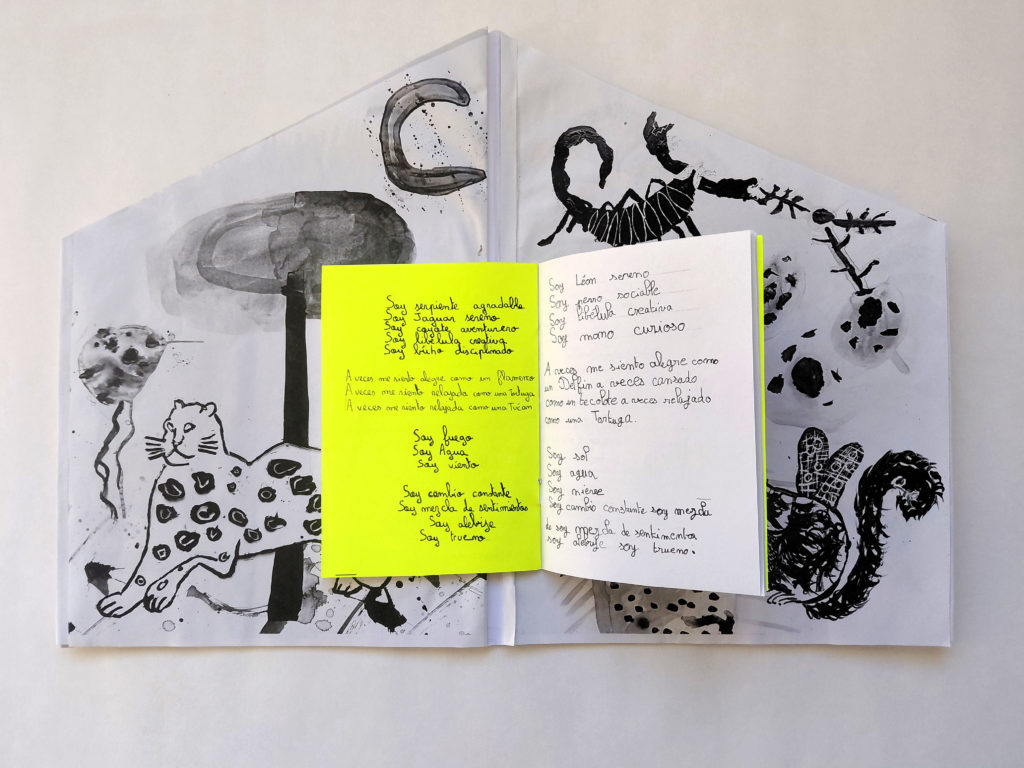 Soy serpiente agradable
Soy Jaguar sereno
Soy coyote aventurero
Soy libélula creativa
Soy búho disciplinado
A veces me siento alegre como un flamenco
A veces me siento relajada como una Tortuga
A veces me siento relajada como una Tucan
Soy fuego
Soy Agua
Soy viento
Soy cambio constante
Soy mezcla de sentimientos
Soy alebrije
Soy trueno
Soy Léon sereno
Soy perro sociable
Soy libélula creativa
Soy mono curioso
A veces me siento alegre como
un Delfin a veces cansado
como un tecolote a veces relajado
como una Tortuga.
Soy sol
Soy agua
Soy nieve
Soy cambio constante soy mezcla
de soy mezcla de sentimentos
soy alebrije soy trueno.